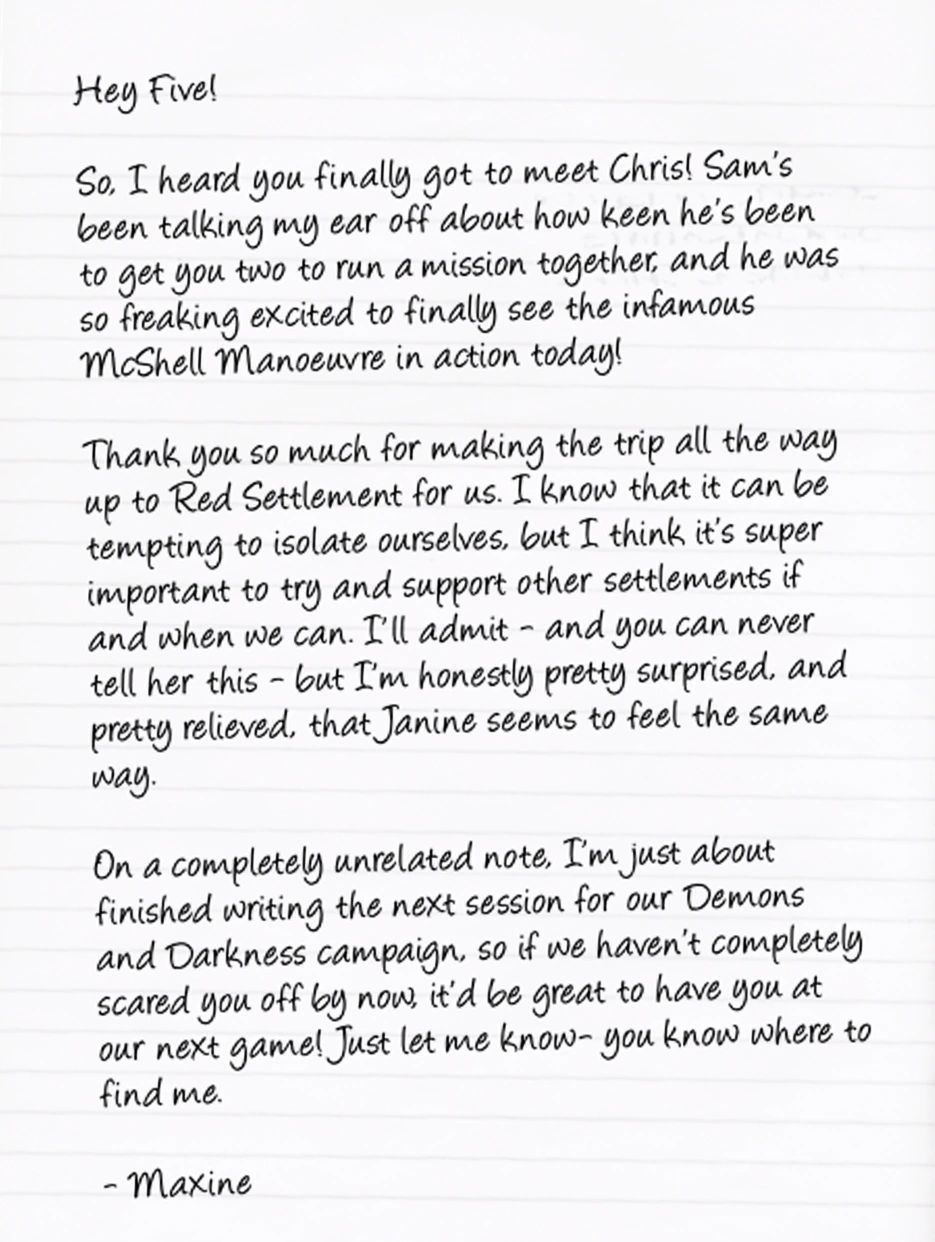 Hey Five!
So, I heard you finally got to meet Chris! Sam's
been talking my ear off about how keen he's been
to get you two to run a mission together, and he was
so freaking excited to finally see the infamous
McShell Manoeuvre in action today!
Thank you so much for making the trip all the way
up to Red Settlement for us. I know that it can be
tempting to isolate ourselves, but I think it's super
important to try and support other settlements if
and when we can. I'll admit - and you can never
tell her this - but I'm honestly pretty surprised, and
pretty relieved, that Janine seems to feel the same
way.
On a completely unrelated note, I'm just about
finished writing the next session for our Demons
and Darkness campaign, so if we haven't completely
scared you off by now, it'd be great to have you at
our next game! Just let me know- you know where to
find me.
- Maxine